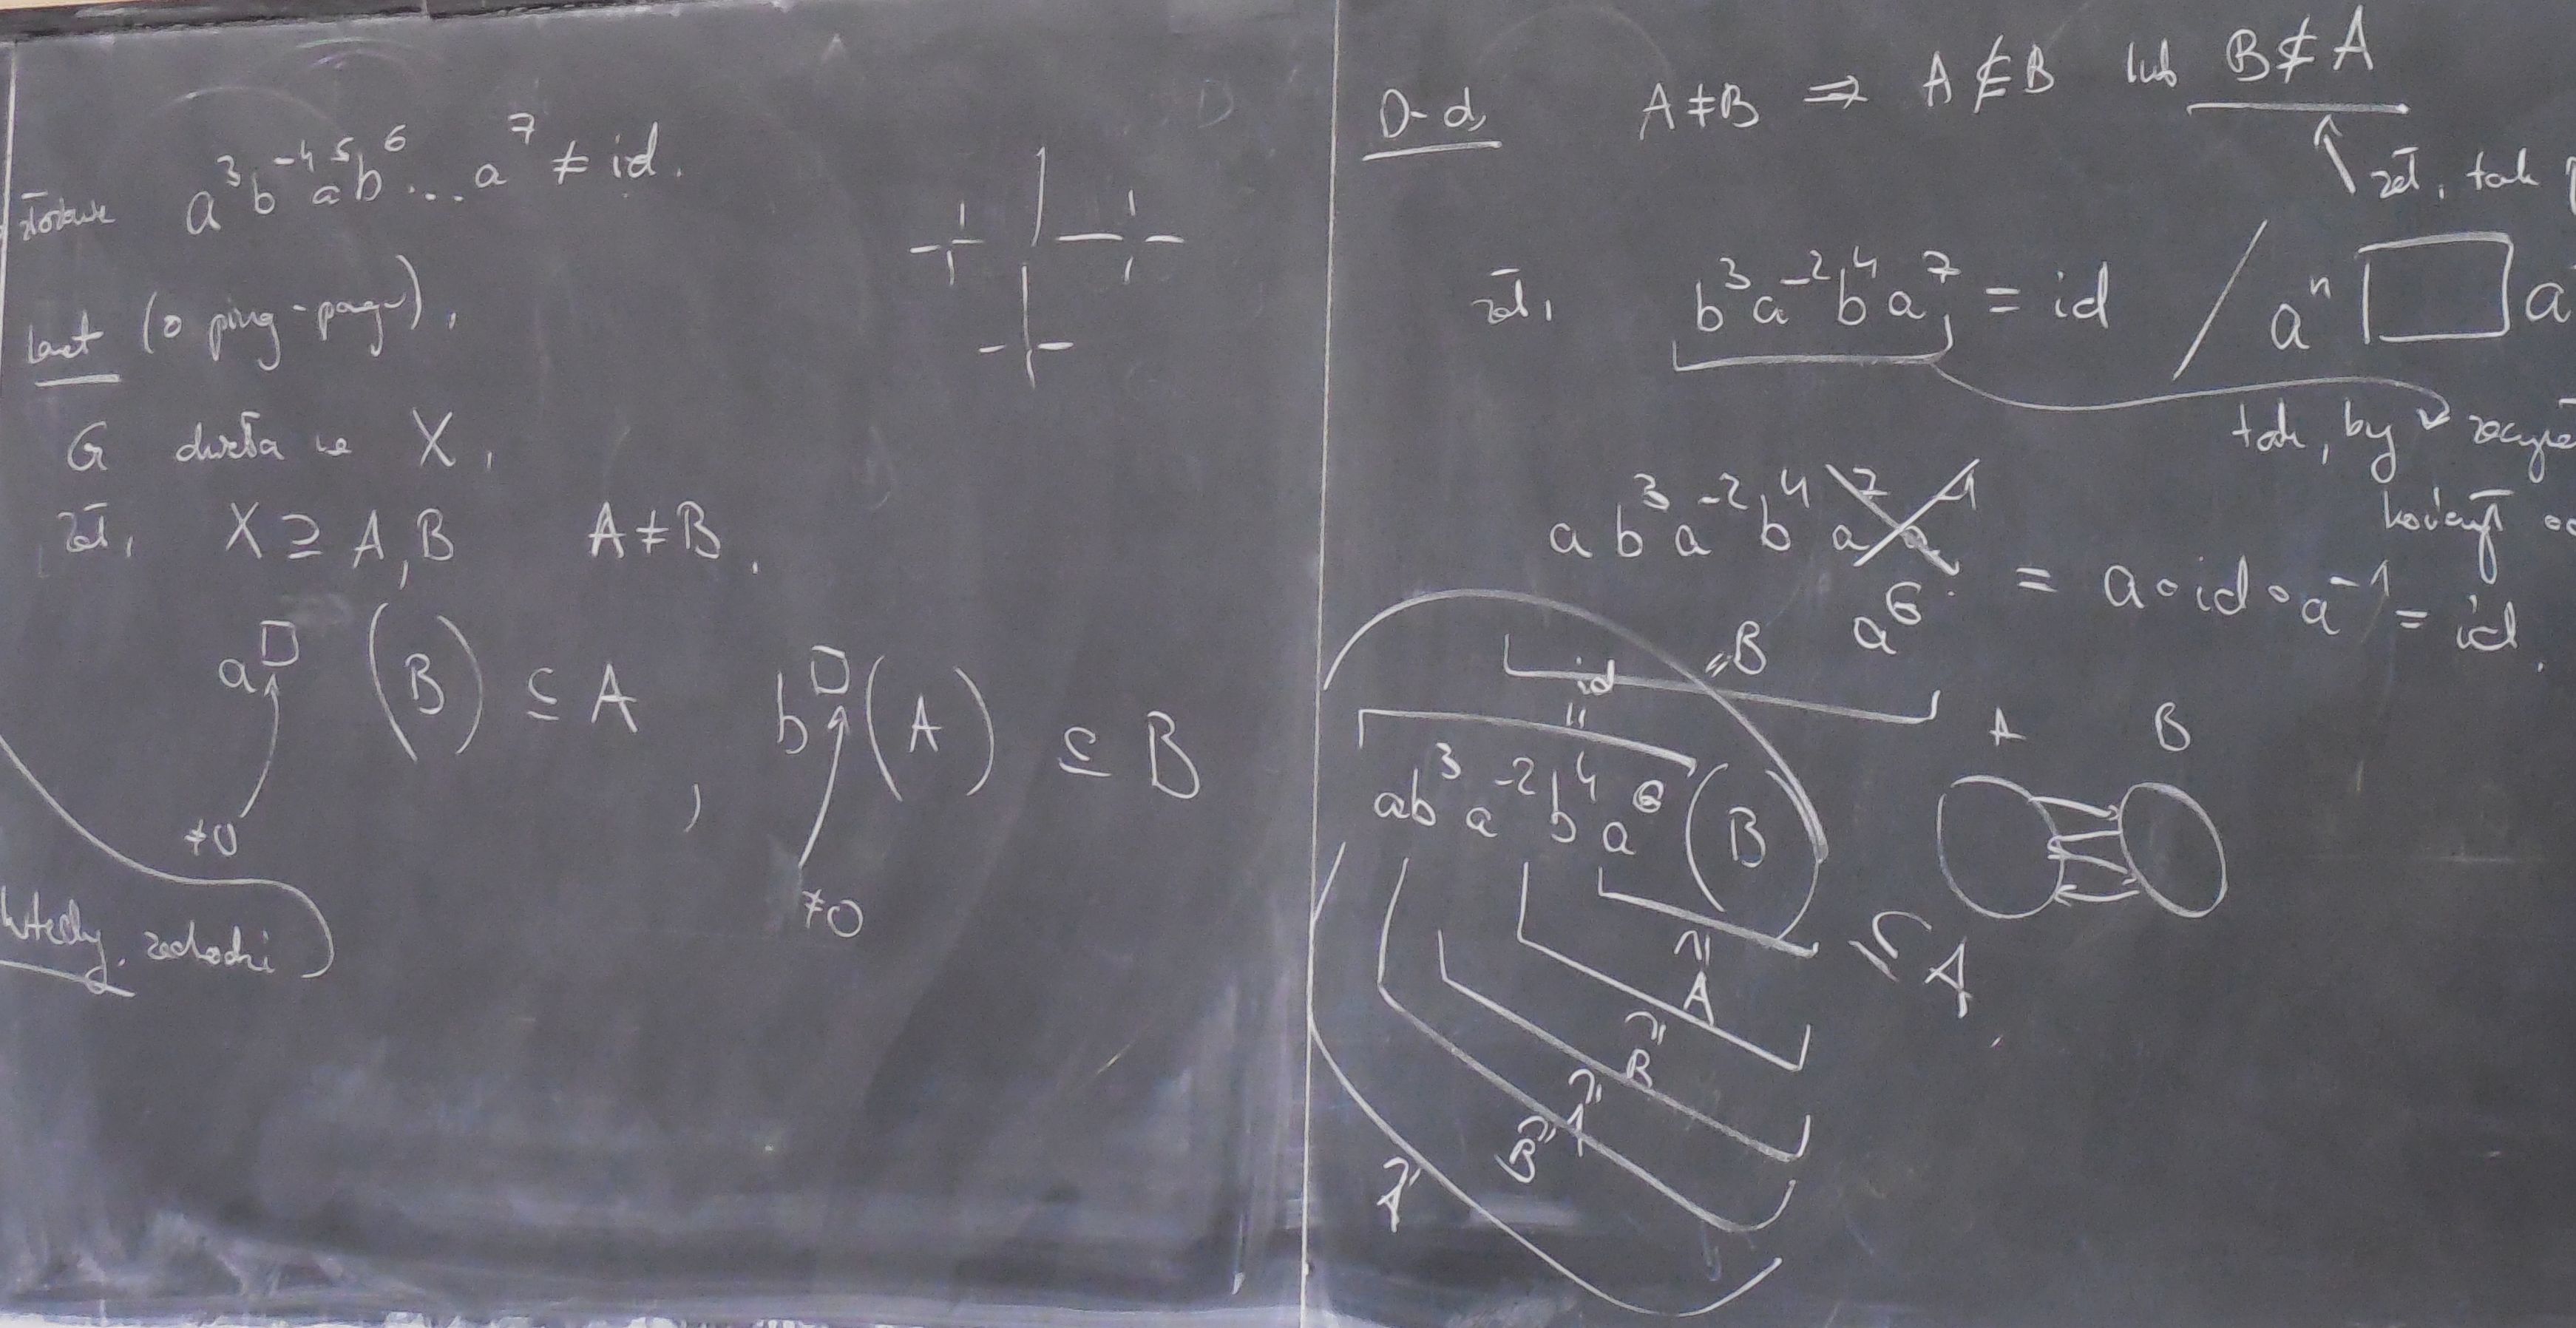 a³b⁻⁴a⁵b⁶...a⁷ ≠ id.
(o ping-pongu).
G działa na X,
zał, X ⊇ A, B A ≠ B.
a^□ (B) ⊆ A, b^□ (A) ⊆ B
≠0
≠0
Wtedy zachodzi
D-d, A ≠ B ⇒ A ⊄ B lub B ⊄ A
zał, tak
zał, b³a⁻²b⁴a⁷ = id / aⁿ □ a
tak, by
a b³a⁻²b⁴ a⁷ a⁻¹
a⁶ = a∘id∘a⁻¹ = id.
= B
id
=
ab³a⁻²b⁴a⁶ (B) ⊆ A
A B
⊆ A
⊆ B
⊆ A
⊆ B
⊆ A